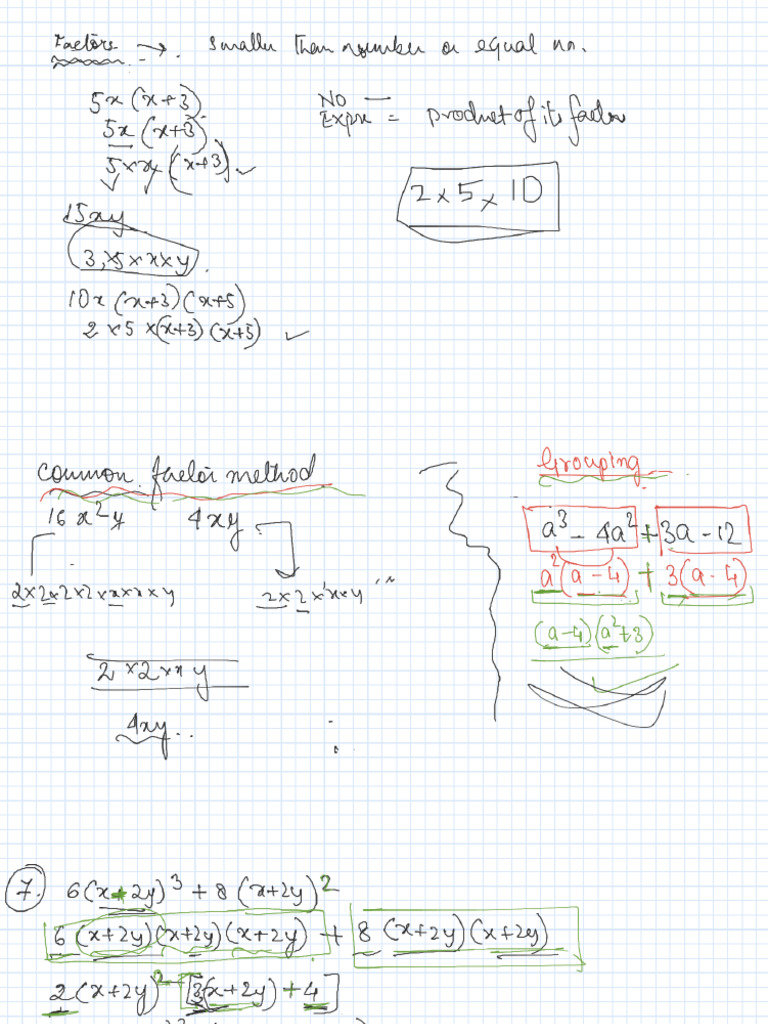 Factors → smaller than number or equal no.
5x(x+3)
5x(x+3)
5×x(x+3) ✓
NO
Expr = Product of its factor
2×5×10
15xy
3×5×x×y
10x(x+3)(x+5)
2×5×(x+3)(x+5) ✓
common factor method
16x²y 4xy
2×2×2×2×x×x×y 2×2×x×y
2×2×x y
4xy
Grouping
a³-4a²+3a-12
a²(a-4)+3(a-4)
(a-4)(a²+3)
7. 6(x+2y)³+8(x+2y)²
6(x+2y)(x+2y)(x+2y)+8(x+2y)(x+2y)
2(x+2y)²[3(x+2y)+4]